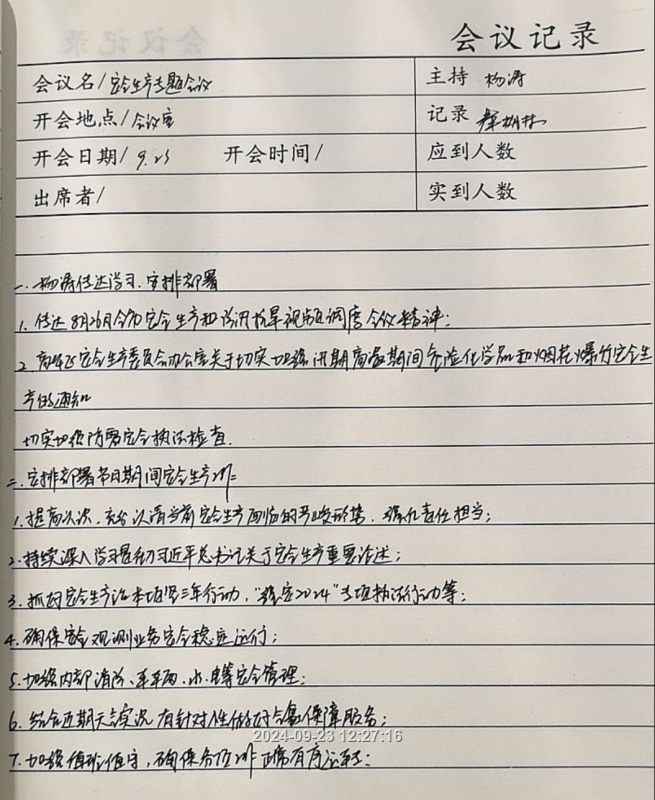 会议记录
会议名/安全生产专题会议 主持 杨涛
开会地点/会议室 记录
开会日期/ 9.23 开会时间/ 应到人数
出席者/ 实到人数
一.杨涛传达学习、安排部署
1.传达8月26日全市安全生产和防汛抗旱视频调度会议精神;
2.安全生产委员会办公室关于切实加强汛期高温期间危险化学品和烟花爆竹安全生
产的通知
切实加强防雷安全执法检查.
二.安排部署节日期间安全生产工作:
1.提高认识,充分认清当前安全生产面临的严峻形势,强化责任担当;
2.持续深入学习贯彻习近平总书记关于安全生产重要论述;
3.抓好安全生产治本攻坚三年行动,“稳定2024”专项执法行动等;
4.确保安全观测业务安全稳定运行;
5.加强内部消防、车辆、水、电等安全管理;
6.结合近期天气实况有针对性做好气象保障服务;
7.加强值班值守,确保各项工作正常有序运转;
2024-09-23 12:27:16